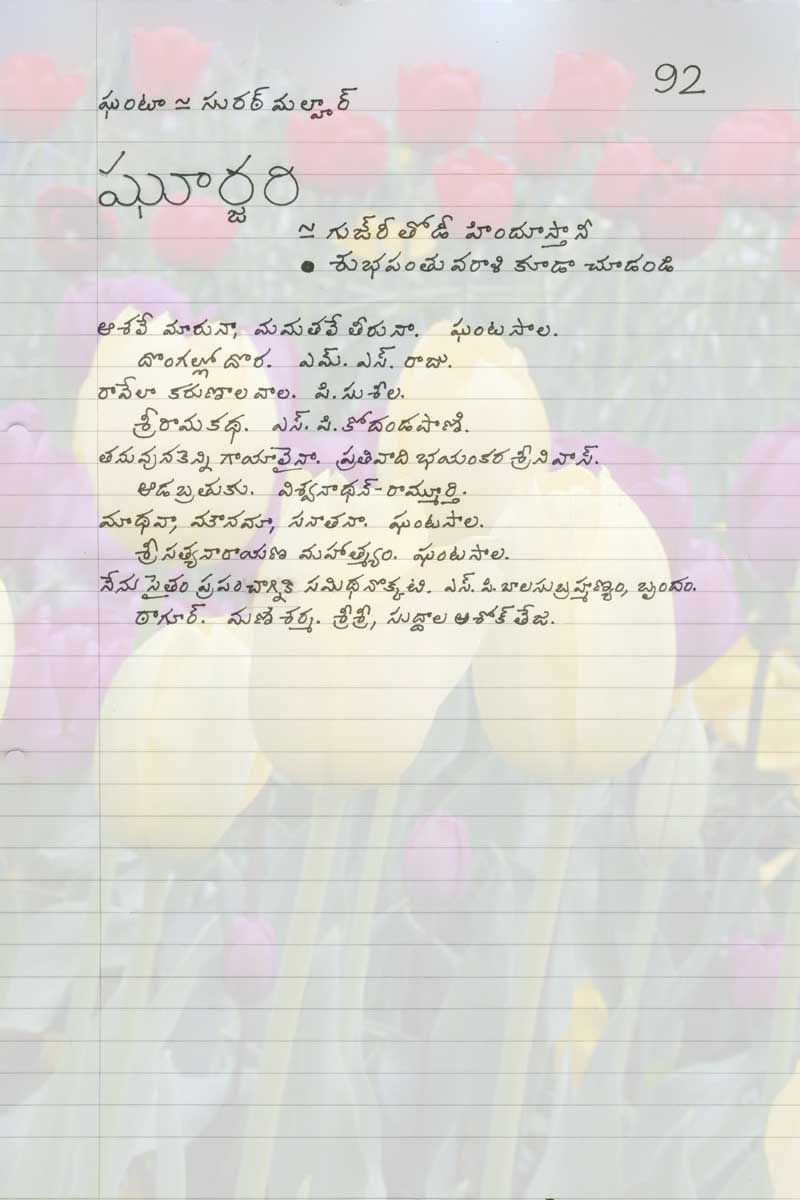 92
ఘంటా ≃ సురఠ్ మల్హార్
ఘూర్జరి
≃ గుజ్‌రీ తోడీ హిందూస్తానీ
● శుభపంతువరాళి కూడా చూడండి
ఆశలే మారునా, మమతలే తీరునా. ఘంటసాల.
దొంగల్లో దొర. ఎమ్. ఎస్. రాజు.
రావేలా కరుణాలవాల. పి. సుశీల.
శ్రీరామకథ. ఎస్. పి. కోదండపాణి.
తనువునకెన్ని గాయాలైనా. ప్రతివాది భయంకర శ్రీనివాస్.
ఆడబ్రతుకు. విశ్వనాథన్-రామ్మూర్తి.
మాధవా, మౌనమా, సనాతనా. ఘంటసాల.
శ్రీ సత్యనారాయణ మహాత్మ్యం. ఘంటసాల.
నేను సైతం ప్రపంచాగ్నికి సమిధనొక్కటి. ఎస్. పి. బాలసుబ్రహ్మణ్యం, బృందం.
ఠాగూర్. మణిశర్మ. శ్రీశ్రీ, సుద్దాల అశోక్ తేజ.